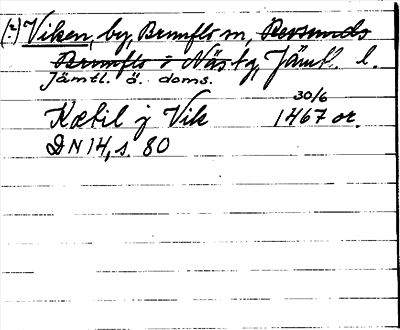 (:) Viken, by, Brunflo sn, Revsunds
Brunflo o Näs tg, Jämtl. l.
Jämtl. ö. doms.
Kætil j Vik 30/6 1467 or.
DN 14, s. 80